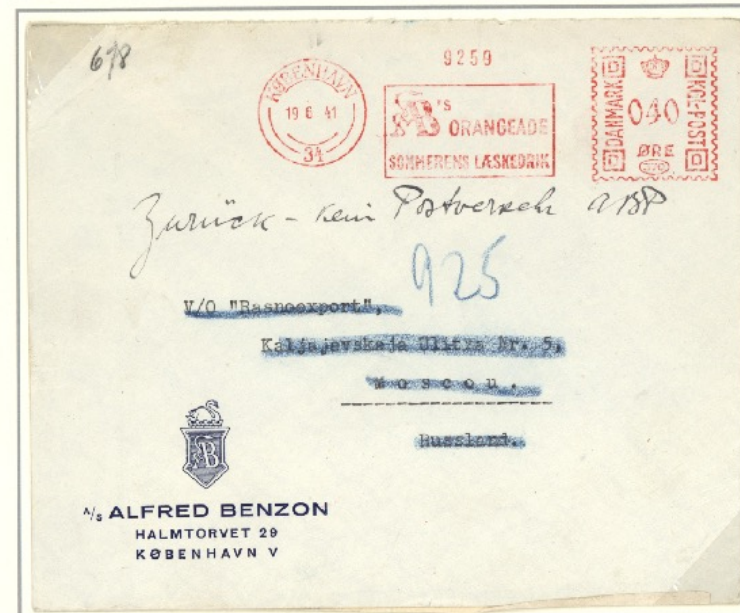 678
KØBENHAVN
19 6 41
34
9259
AB's ORANGEADE
SOMMERENS LÆSKEDRIK
DANMARK
040
ØRE
KGL-POST
Zurück - kein Postverkehr
925
V/O "Rasnoexport",
Kaljajevskaja Ulitza Nr. 5,
Moscou.
Russland.
AB
A/S ALFRED BENZON
HALMTORVET 29
KØBENHAVN V